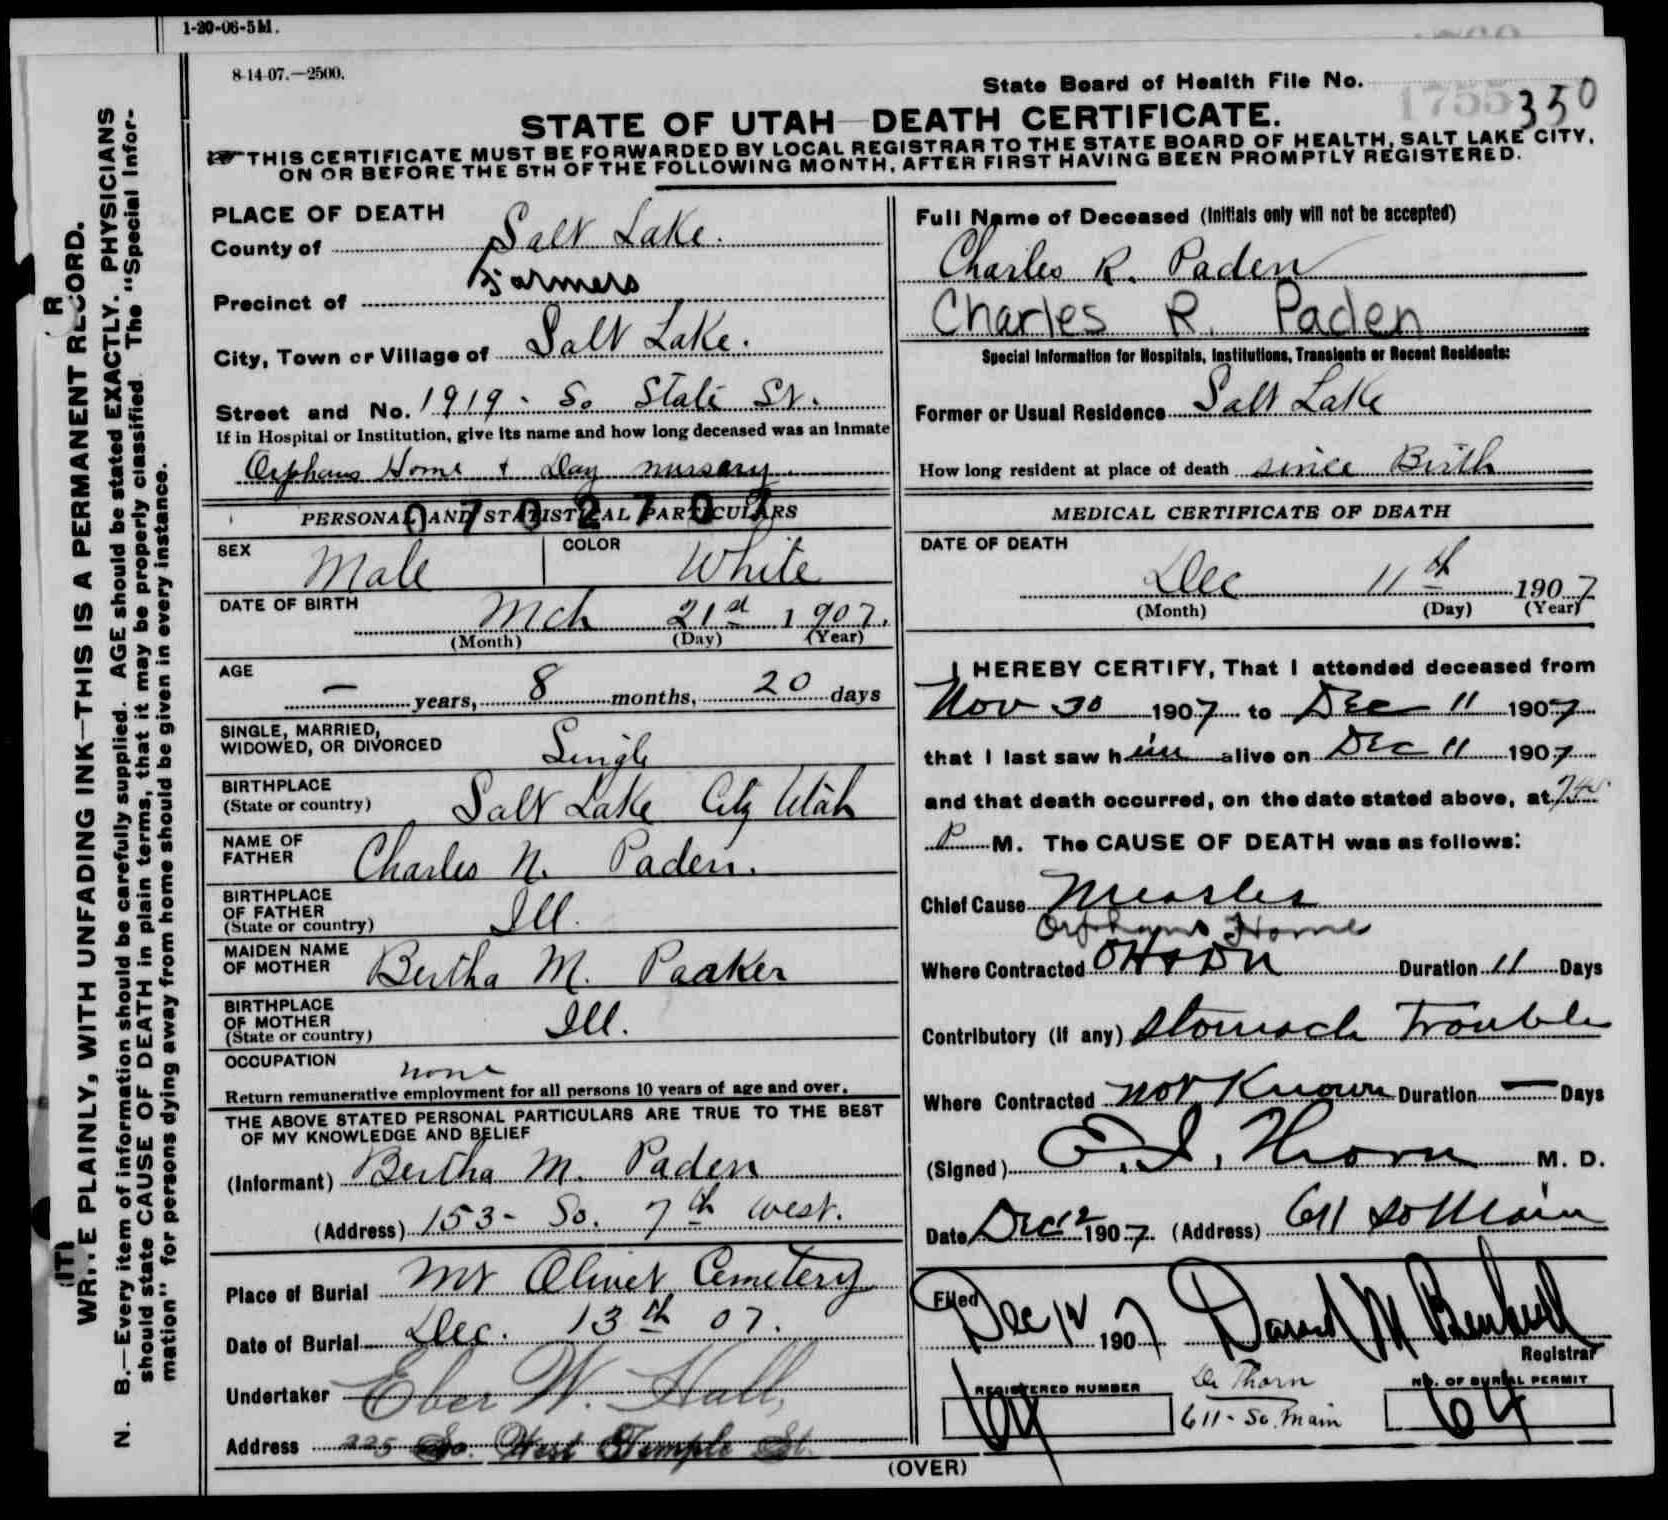 1-20-06-5M.
8-14-07.—2500.
State Board of Health File No. 1755 350
STATE OF UTAH—DEATH CERTIFICATE.
THIS CERTIFICATE MUST BE FORWARDED BY LOCAL REGISTRAR TO THE STATE BOARD OF HEALTH, SALT LAKE CITY,
ON OR BEFORE THE 5TH OF THE FOLLOWING MONTH, AFTER FIRST HAVING BEEN PROMPTLY REGISTERED.
WRITE PLAINLY, WITH UNFADING INK—THIS IS A PERMANENT RECORD.
N. B.—Every item of information should be carefully supplied. AGE should be stated EXACTLY. PHYSICIANS
should state CAUSE OF DEATH in plain terms, that it may be properly classified. The "Special Infor-
mation" for persons dying away from home should be given in every instance.
PLACE OF DEATH
County of Salt Lake.
Precinct of Farmers
City, Town or Village of Salt Lake.
Street and No. 1919 - So State St.
If in Hospital or Institution, give its name and how long deceased was an Inmate
Orphans Home & Day nursery
PERSONAL AND STATISTICAL PARTICULARS
070270
SEX Male
COLOR White
DATE OF BIRTH
Mch 21st 1907.
(Month) (Day) (Year)
AGE
— years, 8 months, 20 days
SINGLE, MARRIED,
WIDOWED, OR DIVORCED Single
BIRTHPLACE
(State or country) Salt Lake City Utah
NAME OF
FATHER Charles N. Paden.
BIRTHPLACE
OF FATHER
(State or country) Ill.
MAIDEN NAME
OF MOTHER Bertha M. Paaker
BIRTHPLACE
OF MOTHER
(State or country) Ill.
OCCUPATION none
Return remunerative employment for all persons 10 years of age and over.
THE ABOVE STATED PERSONAL PARTICULARS ARE TRUE TO THE BEST
OF MY KNOWLEDGE AND BELIEF
(Informant) Bertha M. Paden
(Address) 153- So. 7th West.
Place of Burial Mt Olivet Cemetery
Date of Burial Dec. 13th 07.
Undertaker Eber W. Hall,
Address 225 So. West Temple St.
Full Name of Deceased (Initials only will not be accepted)
Charles R. Paden
Charles R. Paden
Special Information for Hospitals, Institutions, Transients or Recent Residents:
Former or Usual Residence Salt Lake
How long resident at place of death since Birth
MEDICAL CERTIFICATE OF DEATH
DATE OF DEATH
Dec 11th 1907
(Month) (Day) (Year)
I HEREBY CERTIFY, That I attended deceased from
Nov 30 1907 to Dec 11 1907
that I last saw him alive on Dec 11 1907
and that death occurred, on the date stated above, at
P M. The CAUSE OF DEATH was as follows:
Chief Cause Measles
Orphans Home
Where Contracted OH & DN Duration 11 Days
Contributory (if any) Stomach Trouble
Where Contracted not Known Duration — Days
(Signed) Thorn M. D.
Date Dec 12 1907 (Address) 611 So Main
Filed Dec 12 1907 David M
Registrar
REGISTERED NUMBER
64
Dr Thorn
611- So. Main
NO. OF BURIAL PERMIT
64
(OVER)